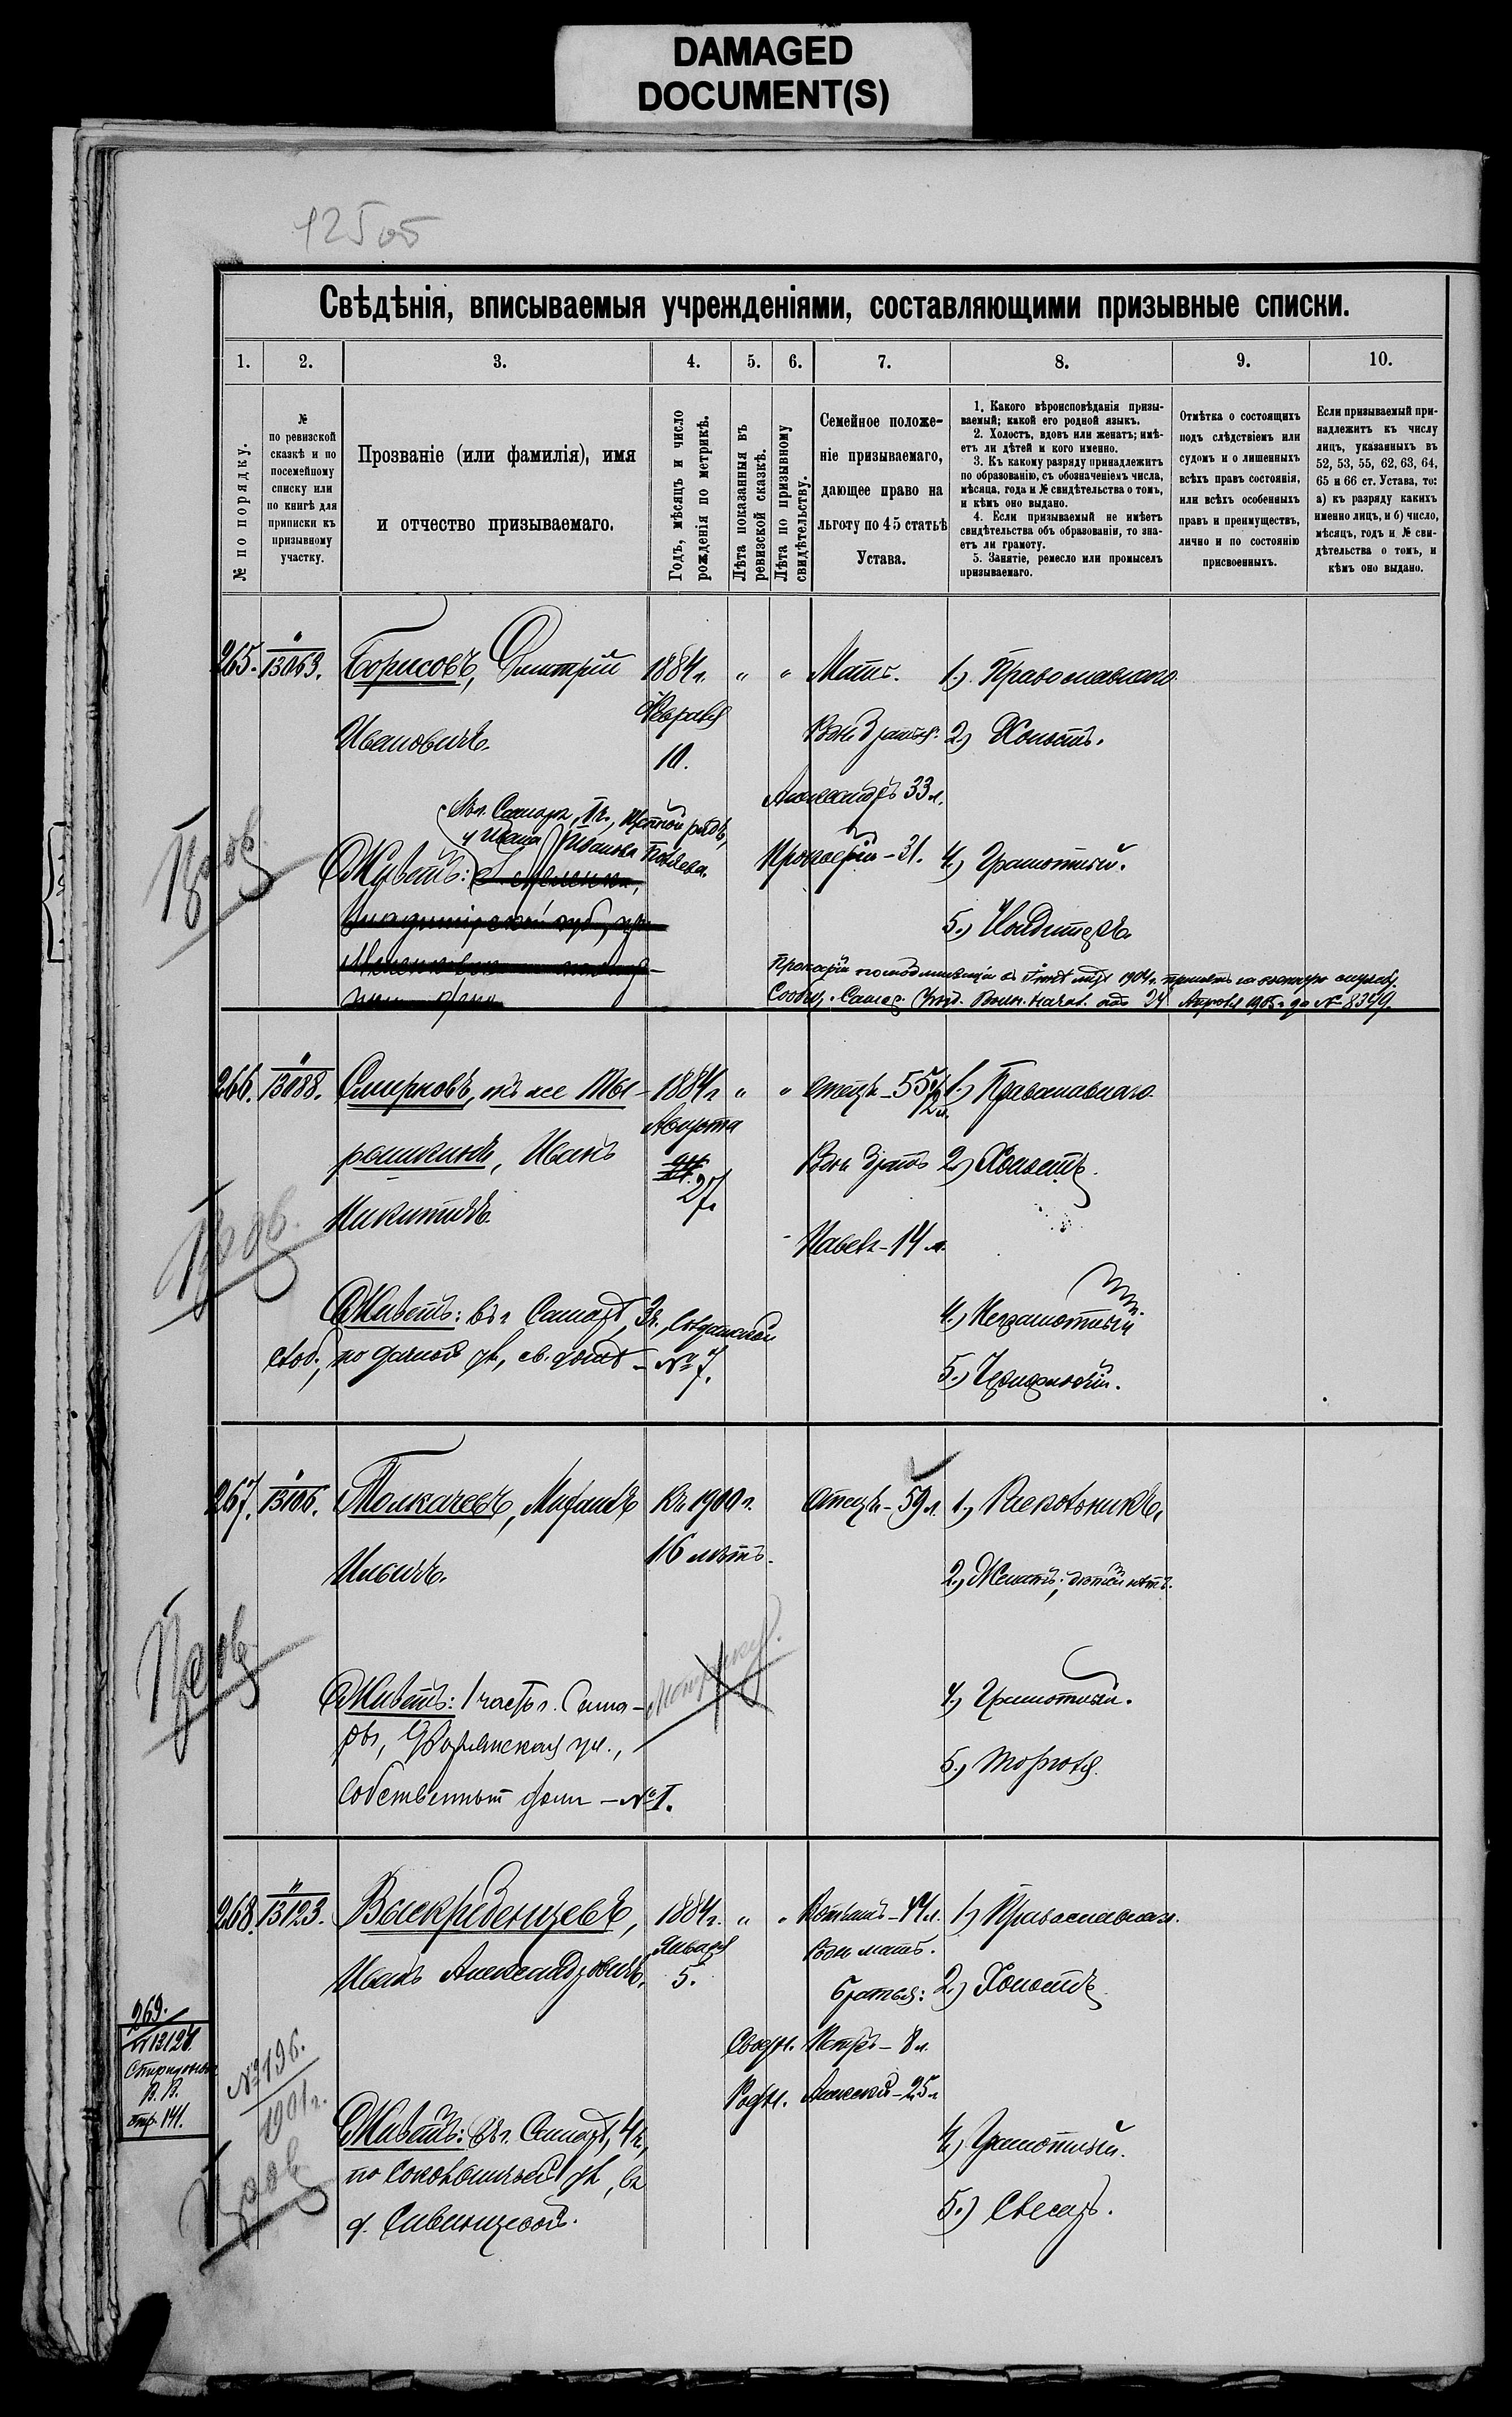 DAMAGED
DOCUMENT(S)
12505
Свѣдѣнія, вписываемыя учрежденіями, составляющими призывные списки.
1. 2. 3. 4. 5. 6. 7. 8. 9. 10.
№ по порядку.
№
по ревизской
сказкѣ и по
посемейному
списку или
по книгѣ для
приписки къ
призывному
участку.
Прозваніе (или фамилія), имя
и отчество призываемаго.
Годъ, мѣсяцъ и число
рожденія по метрикѣ.
Лѣта показанныя въ
ревизской сказкѣ.
Лѣта по призывному
свидѣтельству.
Семейное положе-
ніе призываемаго,
дающее право на
льготу по 45 статьѣ
Устава.
1. Какого вѣроисповѣданія призы-
ваемый; какой его родной языкъ.
2. Холостъ, вдовъ или женатъ; имѣ-
етъ ли дѣтей и кого именно.
3. Къ какому разряду принадлежитъ
по образованію, съ обозначеніемъ числа,
мѣсяца, года и № свидѣтельства о томъ,
и кѣмъ оно выдано.
4. Если призываемый не имѣетъ
свидѣтельства объ образованіи, то зна-
етъ ли грамоту.
5. Занятіе, ремесло или промыселъ
призываемаго.
Отмѣтка о состоящихъ
подъ слѣдствіемъ или
судомъ и о лишенныхъ
всѣхъ правъ состоянія,
или всѣхъ особенныхъ
правъ и преимуществъ,
лично и по состоянію
присвоенныхъ.
Если призываемый при-
надлежитъ къ числу
лицъ, указанныхъ въ
52, 53, 55, 62, 63, 64,
65 и 66 ст. Устава, то:
а) къ разряду какихъ
именно лицъ, и б) число,
мѣсяцъ, годъ и № сви-
дѣтельства о томъ, и
кѣмъ оно выдано.
265. 13063. Борисовъ, Дмитрій 1884 г. " " Мать. 1.) Православнаго
Ивановичъ. Февраля 10. Родн. братья: 2.) Холостъ.
Александръ 33 л.
Вг. Самара, 1 ч.,
Живетъ: Прокофій - 31. 4.) Грамотный.
5.)
1904 г.
24 Апрѣля 1905 г. за № 8379.
266. 13088. Смирновъ, онъ же Мы- 1884 г. " " Отецъ - 55 1/2 л. 1.) Православнаго
рашкинъ, Иванъ Августа 27. Родн. братъ 2.) Холостъ.
Никитичъ. Павелъ - 14 л.
Живетъ: въ г. Самарѣ, 3 ч.,
слоб., по дачной ул., св. домѣ - № 7.
4.) Неграмотный
5.) Чернорабочій.
267. 13106. Толкачевъ, Михаилъ Къ 1900 г. Отецъ - 59 л. 1.) Раскольникъ.
Ильичъ. 16 лѣтъ. 2.) Женатъ; дѣтей нѣтъ.
Живетъ: 1 часть г. Сама-
ры, Дворянская ул.,
собственный домъ - № 1.
4.) Грамотный.
5.) Торговля.
268. 13123. Васкриденцевъ, 1884 г. " " Вотчимъ - 44 л. 1.) Православнаго.
Иванъ Александровичъ. Января 5. Родн. мать.
Братья: 2.) Холостъ
Сводн. Петръ - 8 л.
Родн. Алексѣй - 25 л.
269.
13124.
В. В.
стр. 141.
№ 196.
1901 г.
Живетъ: Въ г. Самарѣ, 4 ч,
по Соколничьей ул., въ
д.
4.) Грамотный.
5.) Слесарь.